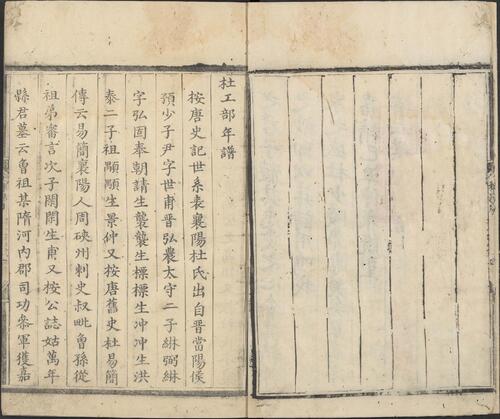 杜工部年譜
按唐史記世系表襄陽杜氏出自晉當陽侯
預少子尹字世甫晉弘農太守二子綝弼綝
字弘固奉朝請生襲襲生標標生冲冲生洪
泰二子祖顒顒生景仲又按唐舊史杜易簡
傳云易簡襄陽人周硤州刺史叔毗曾孫從
祖弟審言次子閑閑生甫又按公誌姑萬年
縣君墓云曾祖某隋河內郡司功叅軍獲嘉